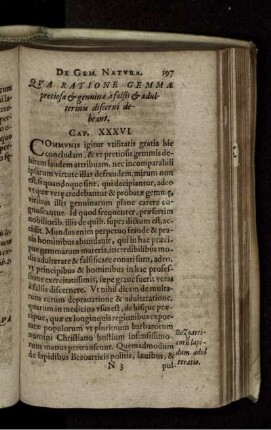 DE GEM. NATURA. 197
QVA RATIONE GEMMÆ
pretiosæ & genuinæ à falsis & adul-
terinis discerni de-
beant.
CAP. XXXVI.
COMMVNIS igitur vtilitatis gratia hic
concludam, & vt pretiosis gemmis de-
bitum laudem attribuam, nec incomparabili
ipsarum virtute illas defraudem, mirum non
est, si quandoque sint, qui decipiantur, adeo-
que pur verę credebantur & probatæ gemmę,
viribus illis genuinarum planè carere co-
gnoscantur. Id quod frequenter, præsertim
nobilioribus illis de quib. supra dictum est, ac-
cidit. Mundus enim perpetuò fraude & pra-
uis hominibus abundauit, qui in hac præci-
pue gemmarum materia, incredibilibus mo-
dis adulterare & falsificare conati sunt, adeo,
vt principibus & hominibus in hac profes-
sione exercitatissimis, sæpe graue fuerit veras
à falsis discernere. Vt nihil dicam de multa-
rum rerum deprauatione & adulteratione,
quarum in medicina vsus est, de hisque præ-
cipuè, quæ ex longinquis regionibus expor-
tatæ populorum vt plurimum barbarorum
nomini Christiano hostium infensissimo-
rum manus pertranseunt. Quemadmodum
de lapidibus Bezoarticis politis, læuibus, &
N 3 pul-
Bezoarti-
corũ lapi-
dum adul
teratio.